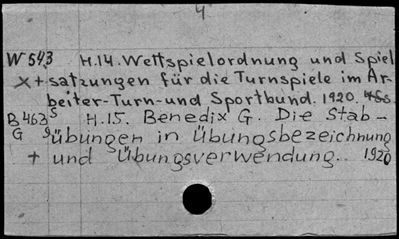 4
W 543 H.14. Wettspielordnung und Spiel
x + satzungen für die Turnspiele im Ar-
beiter-Turn-und Sportbund. 1920.
B 463 H.15. Benedix G. Die Stab-
G 9 übungen in Übungsbezeichnung
+ und Übungsverwendung. 1920